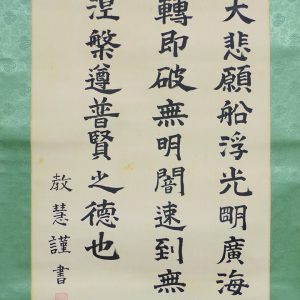 大悲願船浮光明廣海
轉即破無明闇速到無
涅槃遵普賢之德也
教慧謹書